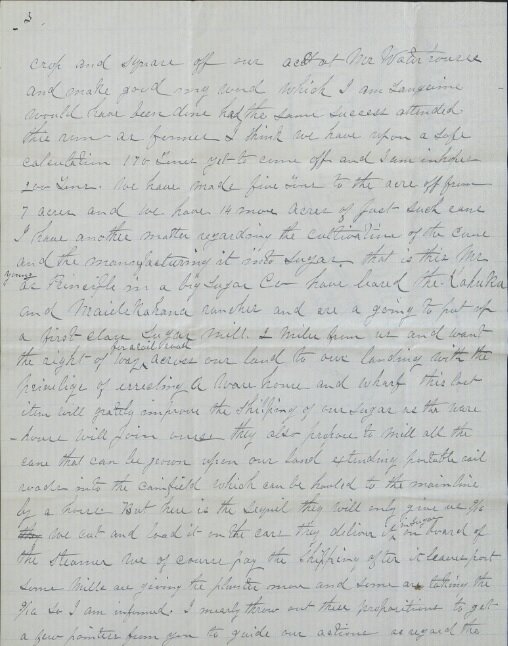 3
crop and square off our acct at Mr Waterhouse
and make good my word which I am sanguine
would have been done had the same success attended
this run as former I think we have upon a safe
calculation 170 Tons yet to come off and I am in hopes
200 Tons. We have made five Tons to the acre off from
7 acres and we have 14 more acres of just such cane
I have another matter regarding the cultivation of the cane
and the manufacturing it into Sugar. that is this Mr
Young
as Principle in a big Sugar Co have leased the Kahuka
and ranches and are a going to put up
a first class Sugar mill. 2 miles from us and want
for a rail road
the right of way across our land to our landing with the
privilige of errecting a Ware house and wharf this last
item will gratly improve the Shipping of our Sugar as the ware
house will join ours they also propose to mill all the
cane that can be grown upon our land extending portable rail
roads into the canefield which can be hauled to the mainline
by a horse But here is the sequel they will only give us
we cut and load it on the cars they deliver
in Sugar
on board of
the Steamer we of course pay the Shipping after it leaves port
some Mills are giving the planter more and some are taking the
so I am infirmed. I mearly throw out these propositions to get
a few pointers from you to guide our actions as regard the